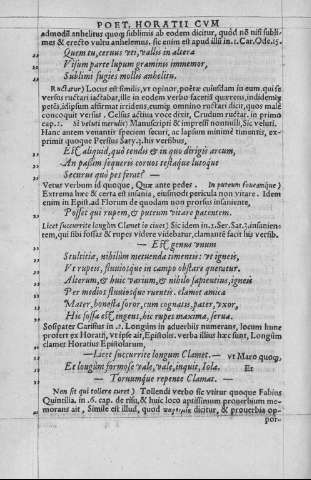 POET. HORATII CVM
admodũ anhelitus quoq; sublimis ab eodem dicitur, quòd nõ nisi subli-
mes & erecto vultu anhelemus. sic enim est apud illũ in.1.Car.Ode.15.
Quem tu, ceruus vti, vallis in altera
Visum parte lupum graminis immemor,
Sublimi fugies mollis anhelitu.
Ructatur) Locus est similis, vt opinor, poëtæ cuiusdam in eum qui se
versus ructari iactabat, ille in eodem verbo facetiis quærens, insidendis
petês, adipsum affirmat irridens, eumq; omnino ructari dicit, quòd malè
concoquit versus. Celsius actiua voce dixit, Crudum ructatur. in primò
cap.2. Si veluti merulis) Manuscripti & impressi nonnulli, Sic veluti.
Hanc autem venantis speciem securi, ac lapsum minimè timentis, ex-
primit quoque Persius Saty.3. his versibus,
Est aliquid, quò tendis & in quo dirigis arcum,
An passim sequeris coruos testáque lutoque
Securus quò pes ferat? —
Vetus verbum id quoque, Quæ ante pedes. In puteum foueámque)
Extrema hæc & certa est insania, eiusmodi pericula non vitare. Idem
enim in Epist.ad Florum de quodam non prorsus insaniente,
Posset qui rupem, & puteum vitare patentem.
Licet succurrite longùm Clamet io ciues) Sic idem in.2.Ser.Sat.3.insanien-
tem, qui sibi fossas & rupes videre videbatur, clamantẽ facit his versib.
— Est genus vnum
Stultitiæ, nihilùm metuenda timentis: vt igneis,
Vt rupeis, fluuiosque in campo obstare queratur.
Alterum, & huic varium, & nihilo sapientius, igneis
Per medios fluuiosque ruentis. clamet amica
Mater, honesta soror, cum cognatis, pater, vxor,
Hîc fossa est ingens, hîc rupes maxima, serua.
Sosipater Carisius in.2. Longùm in aduerbiis numerans, locum hunc
profert ex Horatii, vt ipse ait, Epistolis. verba illius hæc sunt, Longùm
clamet Horatius Epistolarum,
— Licet succurrite longum Clamet. — vt Maro quoq,
Et longùm formose vale, vale, inquit, Iola. Et
— Tornumque repente Clamat. —
Non sit qui tollere curet) Tollendi verbo sic vtitur quoque Fabius
Quintilia. in.6. cap. de risu, & huic loco aptissimum prouerbium me-
morans ait, Simile est illud, quod dicitur, & prouerbia op-
por-